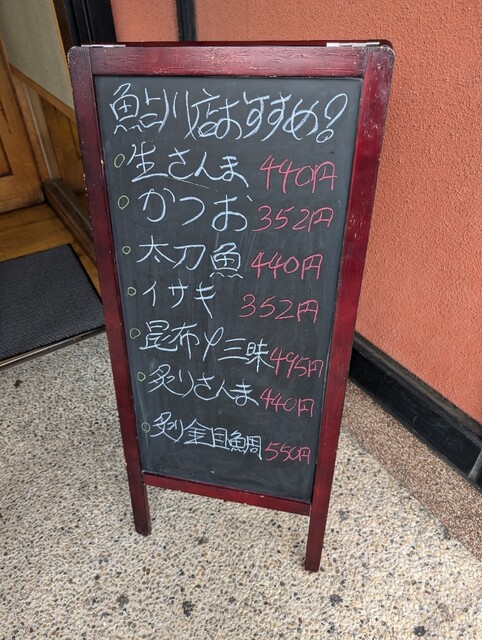 鮎川店おすすめ?
○生さんま 440円
○かつお 352円
○太刀魚 440円
○イサキ 352円
○昆布〆三昧 495円
○炙りさんま 440円
○炙り金目鯛 550円